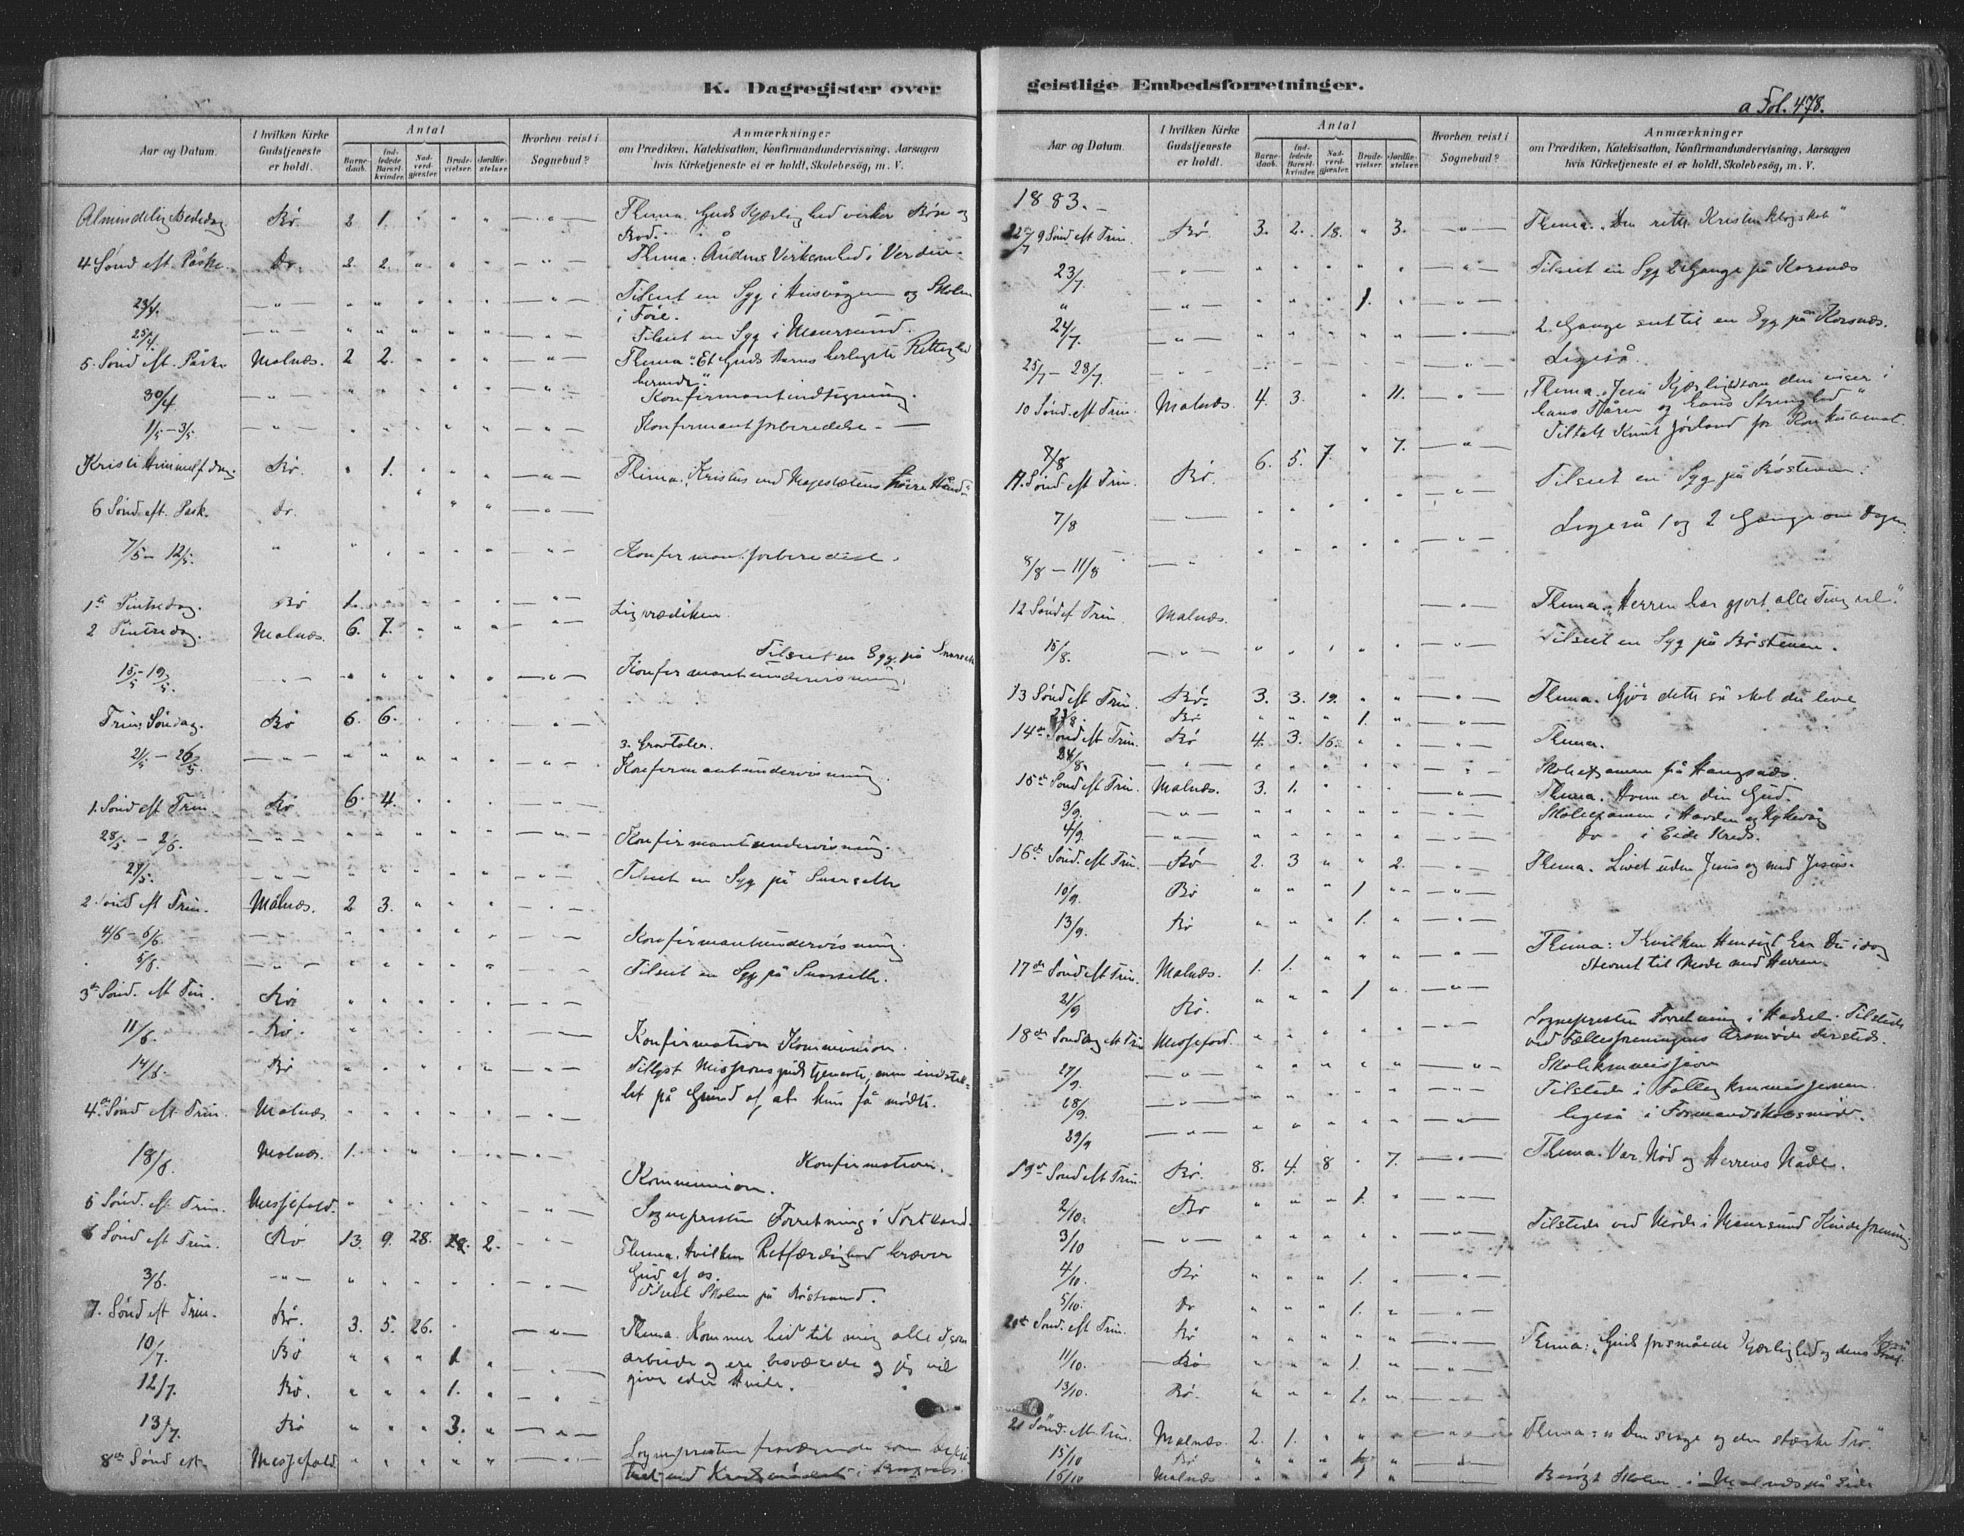 K. Dagregister over
Aar og Datum. | I hvilken Kirke Gudstjeneste er holdt. | Antal | Barnedaab. | Indledede Barselkvinder. | Nadverdgjæster. | Brudevielser. | Jordfæstelser. | Hvorhen reist i Sognebud? | Anmærkninger om Prædiken, Katekisation, Konfirmandundervisning, Aarsagen hvis Kirketjeneste ei er holdt, Skolebesög, m. V.
Almindelig Bededag | Bø | 2 | 1. | Thema. Guds Kjærlighed virker Bøn og
Bod.
4 Sønd. eft. Påske. | Do. | 2. | 2. | Thema. Åndens Virksomhed i Verden.
23/4. | Tilseet en Syg i og Skolen
i
25/4. | Tilseet en Syg i Maursund.
5. Sønd eft. Påske | Malnæs. | 2 | 2. | Thema "Et Guds Barns herligste Rettighed
30/4 | Konfirmantindtegning.
1/5 - 3/5 | Konfirmantforberedelse.
Kristi Himmelf. dag. | Bø. | 1. | Thema. Kristus ved Majestætens høire Hånd
6 Sønd. eft. Påsk. | Do.
7/5 - 12/5. | Konfirmantforberedelse.
1ste Pintsedag. | Bø | 1. | Ligprædiken.
2 Pintsedag. | Malnæs. | 6. | 7.
Tilseet en Syg på
15/5 - 19/5. | Konfirmantundervisning.
Trin. Søndag. | Bø | 6. | 6.
3. Gravtaler.
21/5 - 26/5. | Konfirmantundervisning.
1. Sønd eft Trin. | Bø | 6. | 4.
28/5 - 2/6. | Konfirmantundervisning.
29/5. | Tilseet en Syg på
2 Sønd eft Trin. | Malnæs. | 2 | 3.
4/6 - 6/6 | Konfirmantundervisning.
5/6. | Tilseet en Syg på
3die Sønd. eft Trin. | Bø
11/6 | Bø. | Konfirmation Kommunion.
14/6. | Bø | Tillyst Missionsgudstjeneste, men indstillet på Grund af, at kun få mødte.
4de Sønd eft Trin. | Malnæs.
18/6. | Malnæs. | 1. | Konfirmation.
Kommunion.
5 Sønd. eft. Trin. | Messefald. | Sognepresten Forretning i Sortland.
6 Sønd eft Trin. | Bø | 13. | 9. | 28. | 2. | Thema. Hvilken Retfærdighed kræver
Gud af os.
3/6. | Tilseet Skolen på
7. Sønd eft Trin. | Bø. | 3. | 5. | 26. | Thema. Kommer hid til mig alle I som
10/7. | Bø | 1. | arbeide og ere besværede og jeg vil
12/7. | Bø. | 1. | give eder Hvile.
13/7. | Bø | 3.
8de Sønd eft | Messefald. | Sognepresten fraværende som
geistlige Embedsforretninger.
a Fol. 478.
Aar og Datum. | I hvilken Kirke Gudstjeneste er holdt. | Antal | Barnedaab. | Indledede Barselkvinder. | Nadverdgjæster. | Brudevielser. | Jordfæstelser. | Hvorhen reist i Sognebud? | Anmærkninger om Prædiken, Katekisation, Konfirmandundervisning, Aarsagen hvis Kirketjeneste ei er holdt, Skolebesög, m. V.
1883.
22/7 9 Sønd eft Trin. | Bø. | 3. | 2. | 18. | 3. | Thema. "Den rette Kristen
23/7 | Tilseet en Syg 2 Gange på Korsnæs
" | 1.
24/7. | 2 Gange seet til en Syg på Korsnæs.
25/7 - 28/7. | Ligeså.
10 Sønd. eft Trin. | Malnæs. | 4. | 3. | 11. | Thema. Jesu Kjærlighed som den viser i
hans Tårer og hans Strenghed"
7/8 | Tiltalt Knut for Konkubinat.
11. Sønd eft Trin. | Bø. | 6. | 5. | 7. | 7.
7/8 | Tilseet en Syg på
8/8 - 11/8 | Ligeså 1 og 2 Gange om Dagen
12 Sønd ef Trin | Malnæs. | Thema. "Herren har gjort alle Ting vel."
15/8. | Tilseet en Syg på
13 Sønd eft Trin. | Bø. | 3. | 3. | 19. | Thema. Gjør dette så skal du leve
23/8. | Bø | 1.
14de Sønd eft Trin. | Bø | 4. | 3. | 16. | Thema.
24/8. | Skoleexamen på
15de Sønd eft Trin. | Malnæs. | 3. | 1. | Thema. Hvem er din Gud.
3/9. | Skoleexamen i
4/9. | Do i Eide Kreds.
16de Sønd. eft Trin. | Bø | 2. | 3 | 2. | Thema. Livet uden Jesus og med Jesus.
10/9. | Bø | 1.
13/9. | Bø | 1. | Thema: I hvilken Hensigt har Du i dag
17de Sønd eft Trin. | Malnæs. | 1. | 1. | stevnet til Møde med Herren
21/9 | Bø. | 1
18de Søndag eft Trin | Messefald. | Sognepresten Forretning i Hadsel. Tilstede
ved Fællesforeningens Årsmøde dersteds.
27/9. | Skolekommission
28/9. | Tilstede i Fattigkommissionen.
29/9 | ligeså i Formandskabsmøde.
19de Sønd eft Trin. | Bø. | 8. | 4. | 8 | 7. | Thema. Vor Nød og Herrens Nåde.
2/10. | Bø | 1.
3/10 | Tilstede ved Møde i Maursund Kvindeforening.
4/10. | Bø | 1.
5/10. | Do | 1.
20de Sønd. eft Trin. | Bø | Thema: "Guds forsmåede Kjærlighed og dens
11/10. | Bø | 1.
13/10. | Bø. | 1.
21 Sønd. eft. Trin. | Malnæs. | 2. | 1. | Thema: "Den svage og den stærke Tro."
15/10 | Bø
16/10 | Malnæs | 1 | Besøgt Skolen i Malnæs på Eide